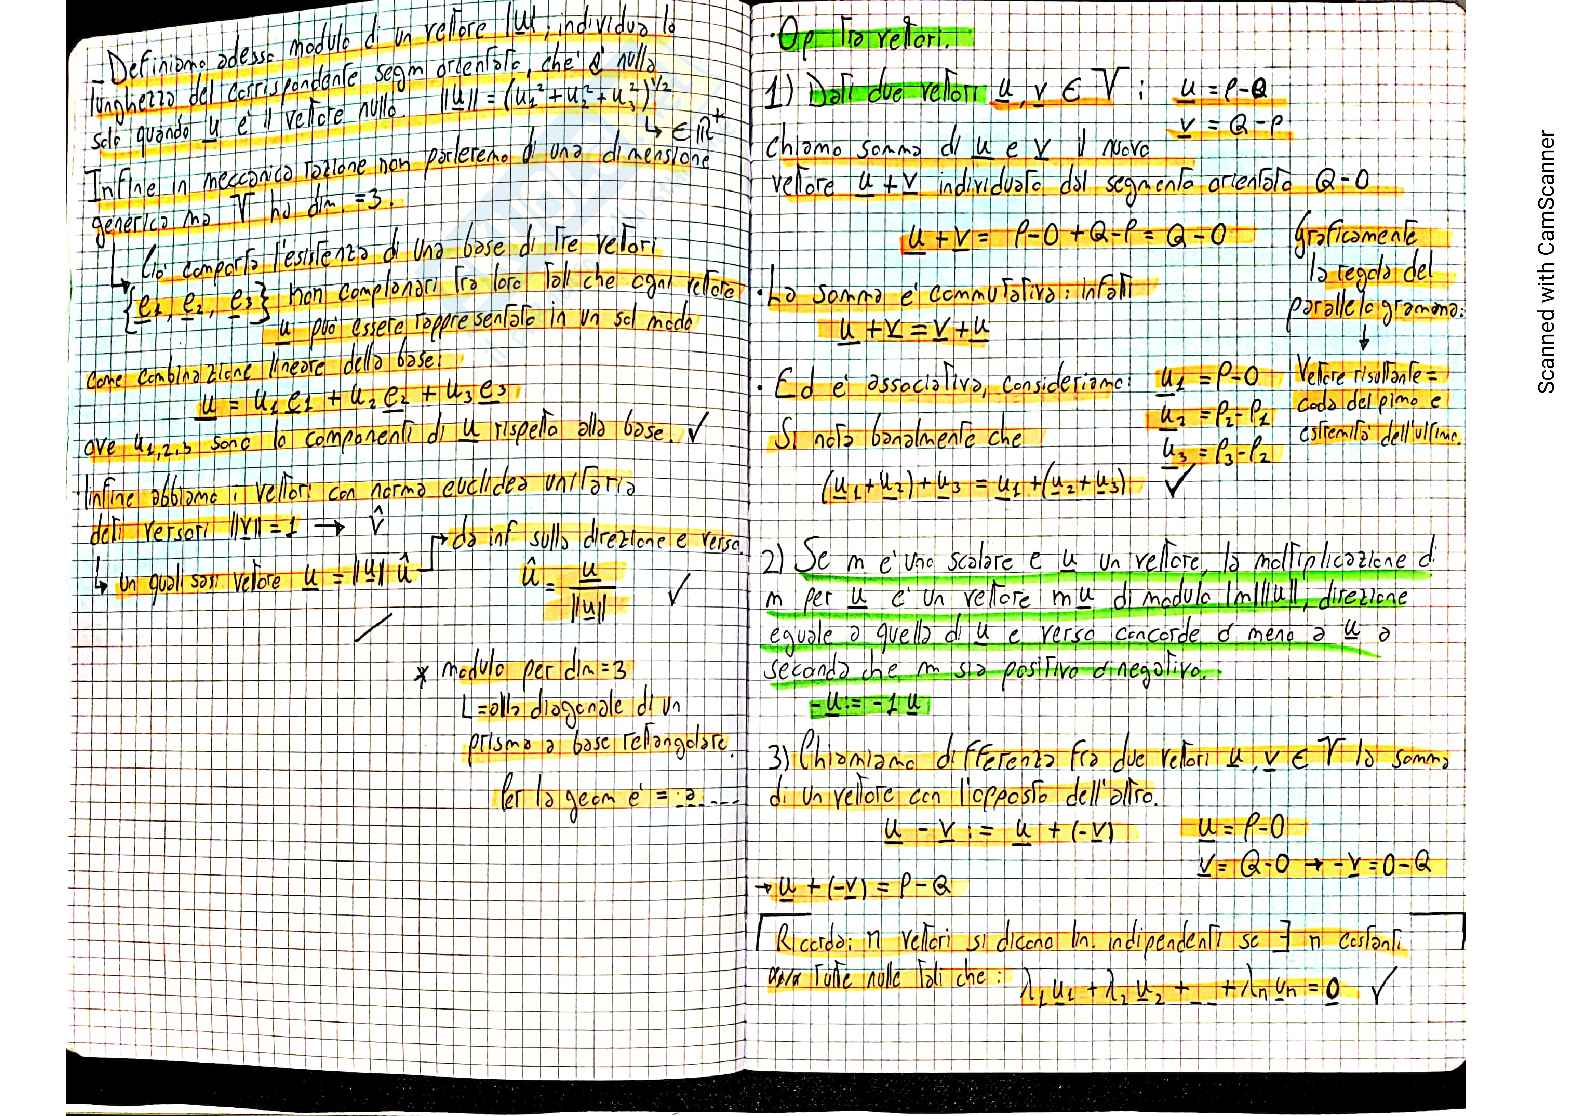 - Definiamo adesso modulo di un vettore |u|: individua la
lunghezza del corrispondente segm orientato, che è nulla
solo quando u è il vettore nullo. ||u|| = (u₁²+u₂²+u₃²)^1/2
↳ ∈ ℝ⁺
Infine in meccanica razione non parleremo di una dimensione
generica ma V ha dim. =3.
↳ Ciò comporta l'esistenza di una base di tre vettori
{e₁, e₂, e₃} non complanari tra loro tali che ogni vettore
u può essere rappresentato in un sol modo
come combinazione lineare della base:
u = u₁e₁ + u₂e₂ + u₃e₃
ove u₁,₂,₃ sono le componenti di u rispetto alla base. ✓
Infine abbiamo i vettori con norma euclidea unitaria
detti versori ||v||=1 → v̂
↳ un qualsiasi vettore u = ||u|| û
↳ da inf sulla direzione e verso.
û = u / ||u|| ✓
* modulo per dim=3
L = alla diagonale di un
prisma a base rettangolare.
Per la geom è = .a. ....
· Op tra vettori.
1) Dati due vettori u, v ∈ V : u = P-O
v = Q-P
chiamo somma di u e v il nuovo
vettore u + v individuato dal segmento orientato Q-O
u + v = P-O + Q-P = Q-O
Graficamente
la regola del
parallelogramma:
↓
Vettore risultante =
coda del pimo e
estremità dell'ultimo.
· La somma è commutativa: infatti
u + v = v + u
· Ed è associativa, consideriamo: u₁ = P-O
u₂ = P₂-P₁
u₃ = P₃-P₂
Si nota banalmente che
(u₁+u₂)+u₃ = u₁+(u₂+u₃) ✓
2) Se m è uno scalare e u un vettore, la moltiplicazione di
m per u è un vettore mu di modulo |m||u||, direzione
eguale a quella di u e verso concorde o meno a u a
seconda che m sia positivo o negativo.
-u := -1 u
3) Chiamiamo differenza fra due vettori u, v ∈ V la somma
di un vettore con l'opposto dell'altro.
u - v := u + (-v)
u = P-O
v = Q-O → -v = O-Q
→ u + (-v) = P-Q
Ricorda: n vettori si dicono lin. indipendenti se ∃ n costanti
tutte nulle tali che: λ₁u₁ + λ₂u₂ + ... + λₙuₙ = 0 ✓
Scanned with CamScanner